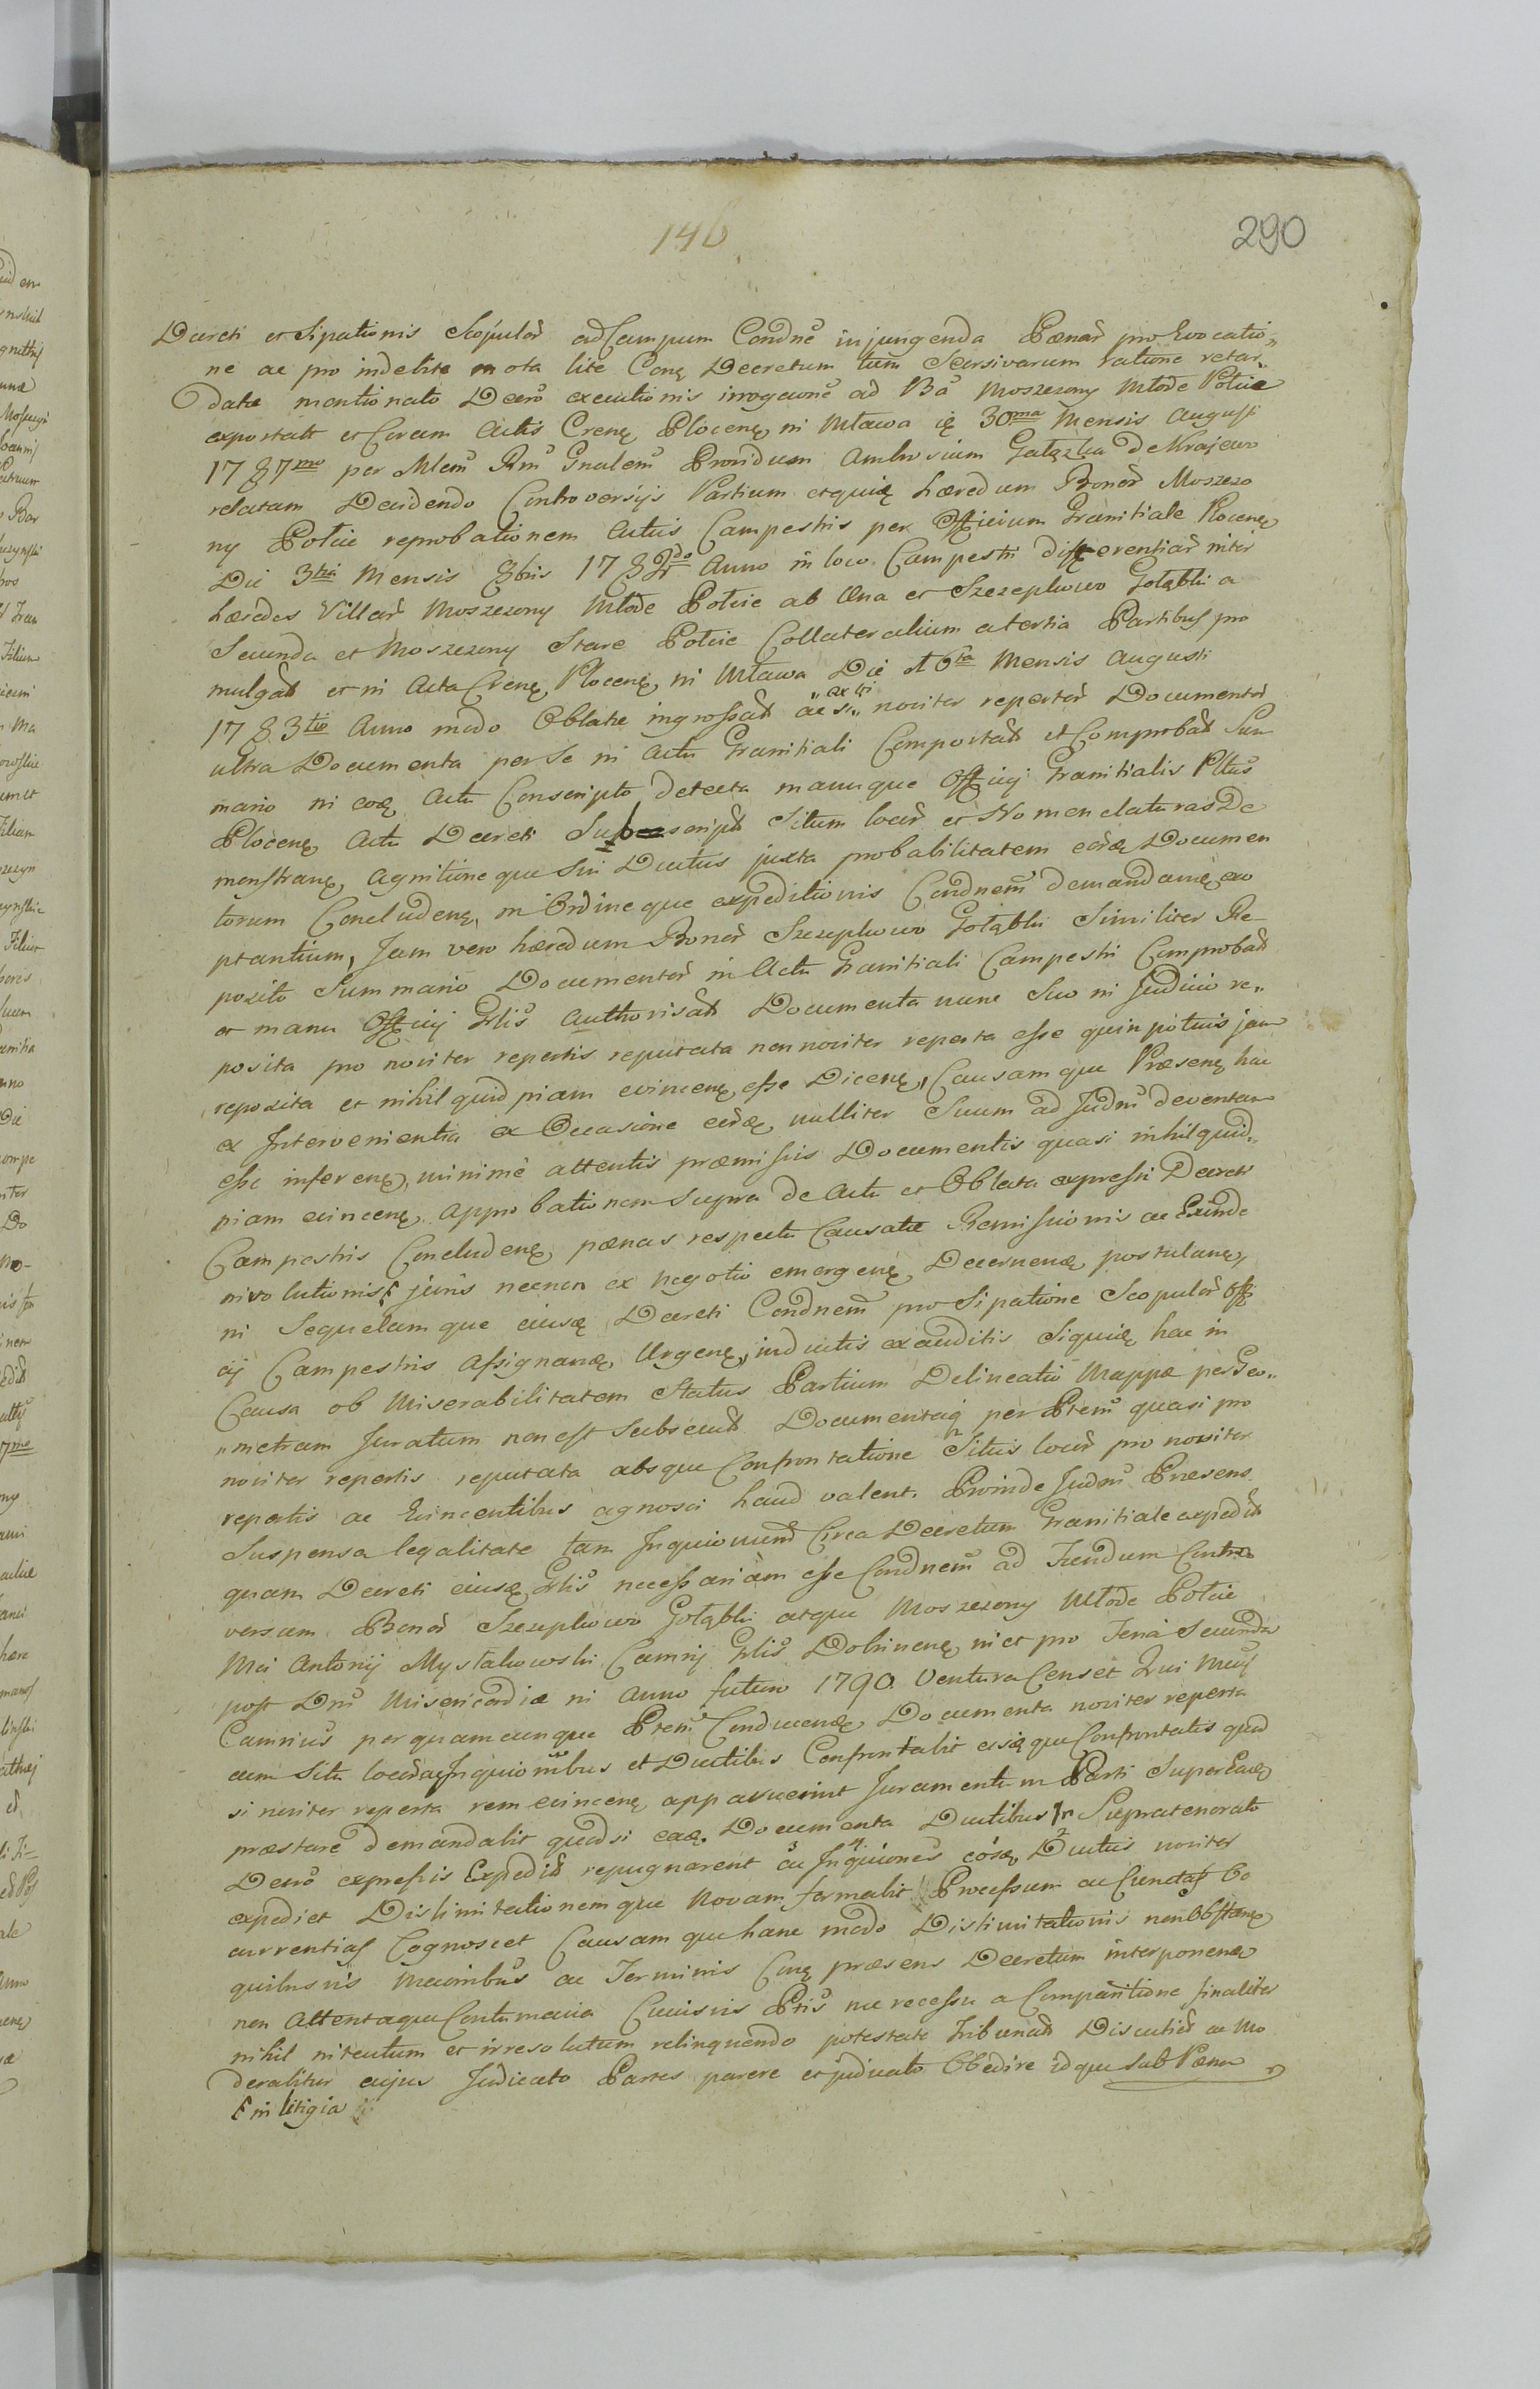 146
290
Decreti et Sipationis Scopulor̃ ad Campum Condne injungenda Pœnar̃ pro Evocatio„
ne ac pro indebite mota lite Conę Decretum tum Scersivarum ratione retar„
datæ mentionato Decrõ executionis irrogõne ad Bã Moszczony Młode Potcie
exportatt et Coram Actis Crenę Plocenę in Mława ię 30ma Mensis Augusti
1787mo per Mlem̃ Rm̃ Gnalem̃ Providum Ambrosium Gałązka de Krajewo
relatam Decidendo Controversijs Partium etquię hæredum Bonor̃ Moszczo
ny Potcie reprobationem Actus Campestris per Officium Granitiale Plocenę
Die 3tia Mensis 8bris 1782do Anno in loco Campestri differentiar̃ inter
hæredes Villar̃ Moszczony Młode Potcie ab Una et Szczepkowo Gołąbki a
Secunda et Moszczony Stare Potcie Collateralium a tertia Partibus pro
mulgad̃ et in Acta Crenę Plocenę in Mława Die 16ta Mensis Augusti
1783tio Anno modo Oblatæ ingrossad̃ ac „ex vi„ noviter repertor̃ Documentor̃
ultra Documenta per Se in Actu Granitiali Comportad̃ et Comprobad̃ Sum
mario in eoę Actu Conscripto detecta manuque Officij Granitialis Pltus̃
Plocenę Actu Decreti Subscripta Situm locor̃ et Nomenclaturas De
monstranę, Agnitioneque Sui Ductus juxta probabilitatem eorę Documen
torum Concludenę, in Ordineque expeditionis Condnem̃ demandanę, ac
ptantium, Jam vero hæredum Bonor̃ Szczepkowo Gołąbki Similiter Re
posito Summario Documentor̃ in Actu Granitiali Campestri Comprobad̃
et manu Officij Gtlis̃ Authorisad̃ Documenta nunc Suo in Judicio re„
posita pro noviter repertis reputata non noviter reperta esse quin potius jam
reposita et nihil quidpiam evincenę esse Dicenę, Causamque Præsenę hac
ex Intervenientia ex Occasione eorę nulliter Suum ad Judm̃ deventam
esse inferenę, minime attentis præmissis Documentis quasi nihil quid„
piam evincenę, approbationem Supra de Actu et Oblata expressi Decreti
Campestris Concludenę, pœnas respectu Causatæ Remissionis ac Exinde
nivolutionis juris necnon ex negotio emergenę Decernenę postulanę,
in Sequelamque eiusę Decreti Condnem̃ pro Sipatione Scopulor̃ Offi
cij Campestris Assignanę, Urgenę, inductis exauditis Siquię hac in
Causa ob Miserabilitatem Status Partium Delineatio Mappæ per Geo„
„metram Juratum non est Subsecut̃ Documentaq̃ per Ptem̃ quasi pro
noviter repertis reputata absque Confrontatione Situs locor̃ pro noviter
repertis ac Evincentibus agnosci haud valent. Proinde Judm̃ Præsens
Suspensa legalitate tam Inquiõnum Circa Decretum Granitiale expedit̃
quam Decreti eiusę Gtlis̃ necessariam esse Condnem̃ ad Fundum Contro
versum Bonor̃ Szczepkowo Gołąbki atque Moszczony Młode Potcie
Mci Antonij Mystakowski Camrij Gtlis̃ Dobrinenę in et pro Feria Secunda
post Dm̃ Misericordiæ in Anno futuro 1790 Ventura Censet Qui Mcus
Camrius̃ per quamcunque Ptem̃ Conducenę Documenta noviter reperta
cum Situ locor̃ ac Inquiõnibus et Ductibus Confrontabit eisęque Confrontatis quod
si noviter reperta rem evincenę apparuerint Juramentum Parti Super eaę
præstare demandabit quodsi eaę Documenta Ductibus in Supratenorato
Decrõ expressis Expedid̃ repugnarent cu Inquiões̃ eosę Ductus noviter
expediet Dislimitationemque Novam formabit Processum ac Cunctas Oc
currentias Cognoscet Causamque hanc modo Dislimitationis non Obstanę
quibusvis Mcionibus̃ ac Terminis Conę præsens Decretum interponenę
non attentaque Contumacia Cuiusvis Ptis̃ nec recessu a Comparitione finaliter
nihil intentum et irresolutum relinquendo potestate Tribunat̃ Discutiet ac Mo
derabitur cujus Judicato Partes parere et judicato Obedire idque Sub Pœna
in litigia